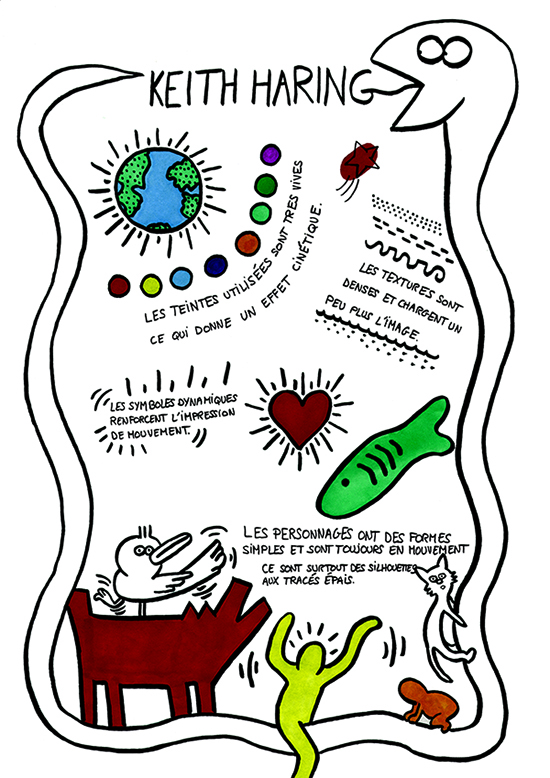 KEITH HARING
LES TEINTES UTILISÉES SONT TRES VIVES
CE QUI DONNE UN EFFET CINÉTIQUE.
LES TEXTURES SONT
DENSES ET CHARGENT UN
PEU PLUS L'IMAGE.
LES SYMBOLES DYNAMIQUES
RENFORCENT L'IMPRESSION
DE MOUVEMENT.
LES PERSONNAGES ONT DES FORMES
SIMPLES ET SONT TOUJOURS EN MOUVEMENT
CE SONT SURTOUT DES SILHOUETTES
AUX TRACÉS ÉPAIS.